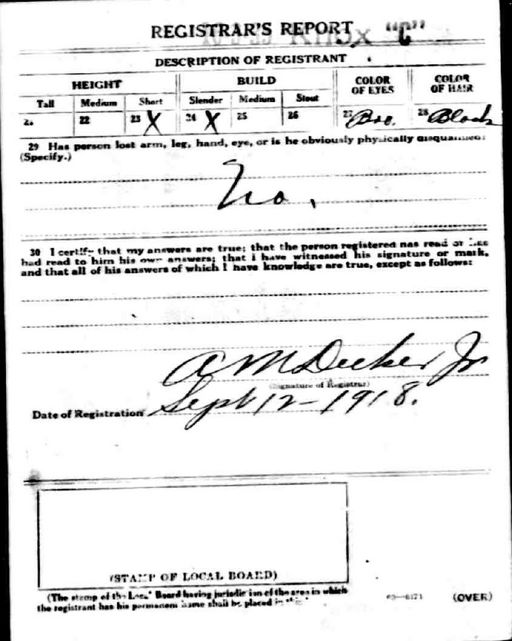 REGISTRAR'S REPORT
Knox "C"
DESCRIPTION OF REGISTRANT
HEIGHT BUILD COLOR OF EYES COLOR OF HAIR
Tall Medium Short Slender Medium Stout
21 22 23 X 24 X 25 26 27 Bro. 28 Black
29 Has person lost arm, leg, hand, eye, or is he obviously physically disqualified?
(Specify.)
No.
30 I certify that my answers are true; that the person registered has read or has
had read to him his own answers; that I have witnessed his signature or mark,
and that all of his answers of which I have knowledge are true, except as follows:
A M Decker Jr
(Signature of Registrar)
Date of Registration Sept 12-1918.
(STAMP OF LOCAL BOARD)
(The stamp of the Local Board having jurisdiction of the area in which
the registrant has his permanent home shall be placed in this
(OVER)